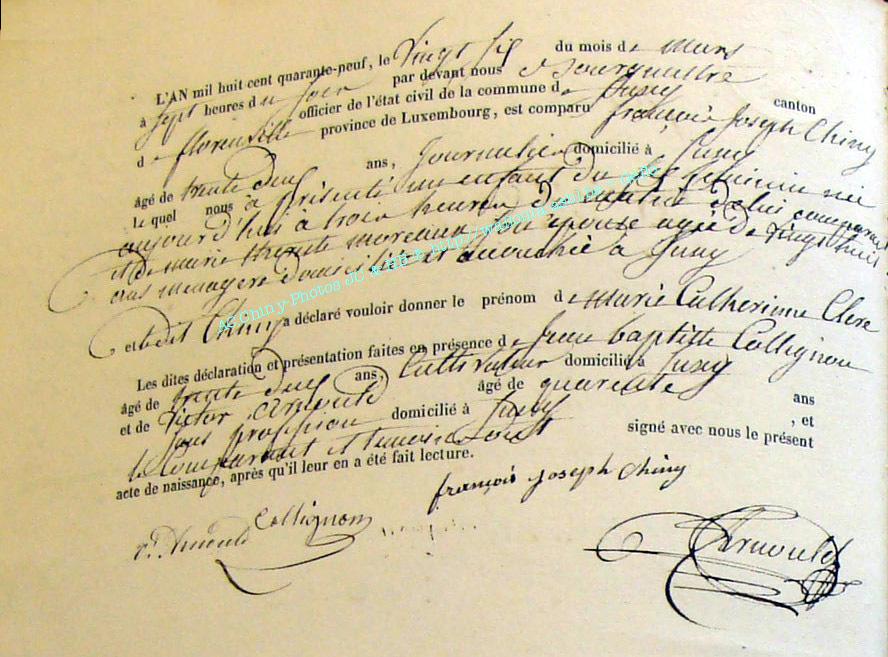 L'AN mil huit cent quarante-neuf, le Vingt six du mois de mars
à sept heures du soir par devant nous Bourgmestre
officier de l'état civil de la commune de Jusey canton
de florenville province de Luxembourg, est comparu françois Joseph Chiny
âgé de trente deux ans, Journalier domicilié à Jusey
le quel nous a présenté un enfant du sexe feminin née
aujourd'hui à trois heures du matin de lui comparant
et de marie moreaux son épouse agée de Vingt huit
ans menagere domiciliée et accouchée à Jusey
et ledit Chiny a déclaré vouloir donner le prénom de Marie Catherinne Clere
Les dites déclaration et présentation faites en présence de Jean baptiste Collignon
âgé de trente deux ans, Cultivateur domicilié à Jusey
et de Victor Arnould âgé de quarente ans
sans profession domicilié à Jusey , et
le Comparant et temoins ont signé avec nous le présent
acte de naissance, après qu'il leur en a été fait lecture.
françois Joseph Chiny
V. Arnould Collignon
Arnould